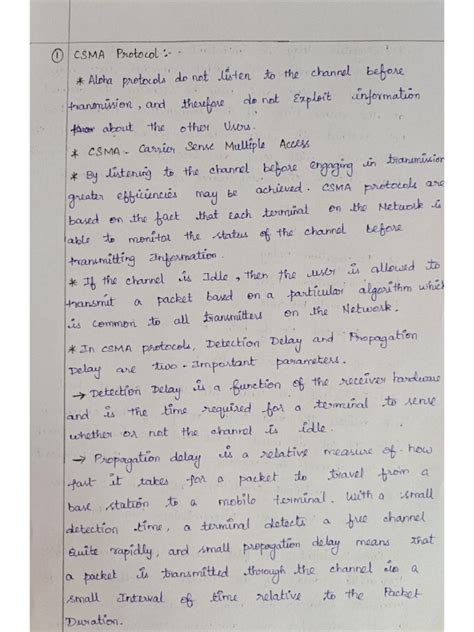 ① CSMA Protocol :-
* Aloha protocols do not listen to the channel before
transmission, and therefore do not Exploit information
about the other Users.
* CSMA - Carrier Sense Multiple Access
* By listening to the channel before engaging in transmission
greater efficiencies may be achieved. CSMA protocols are
based on the fact that each terminal on the Network is
able to monitor the status of the channel before
transmitting Information.
* If the channel is Idle, then the user is allowed to
transmit a packet based on a particular algorithm which
is common to all transmitters on the Network.
* In CSMA protocols, Detection Delay and Propagation
Delay are two Important parameters.
→ Detection Delay is a function of the receiver hardware
and is the time required for a terminal to sense
whether or not the channel is idle.
→ Propagation delay is a relative measure of how
fast it takes for a packet to travel from a
base station to a mobile terminal. With a small
detection time, a terminal detects a free channel
Quite rapidly, and small propagation delay means that
a packet is transmitted through the channel in a
small Interval of time relative to the Packet
Duration.